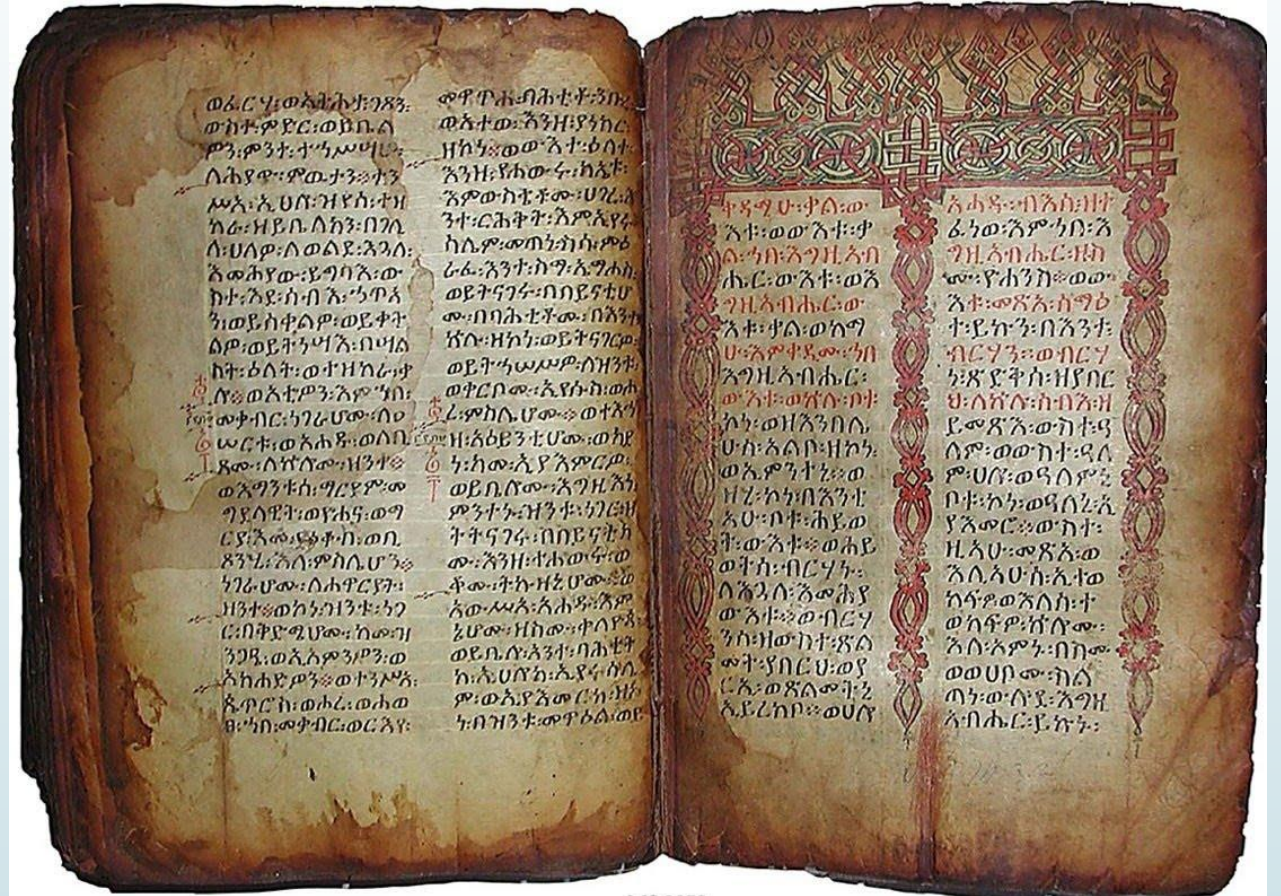 ወፈርሃ፡ወአትሐታ፡ገጾን፡
ውስተ፡ምድር፡ወይቤል
ዎን፡ምንተ፡ተኀሥሣሁ፡
ለሕያው፡ምዉታን፡ተን
ሥአ፡ኢሀሎ፡ዝየሰ፡ተዘ
ከራ፡ዘይቤለክን፡በገሊ
ላ፡ሀለዎ፡ለወልደ፡እጓለ፡
እመሕያው፡ይግባእ፡ው
ስተ፡እደ፡ሰብእ፡ኃጥኣ
ን፡ወይሰቀልዎ፡ወይቀት
ልዎ፡ወይትነሣእ፡በሣል
ስት፡ዕለት፡ወተዘከራ፡ቃ
ሎ፡ወአቲዎን፡እምኀበ፡
መቃብር፡ነገራሆሙ፡ለዐ
ሠርቱ፡ወአሐዱ፡ወለቢ
ጾሙ፡ለኵሎሙ፡ዝንተ።
ወእማንቱሰ፡ማርያም፡መ
ግደላዊት፡ወዮሐና፡ወማ
ርያ፡እመ፡ያዕቆብ፡ወቢ
ጾንሂ፡እለ፡ምስሌሆን።
ነገራሆሙ፡ለሐዋርያት፡
ዘንተ።ወኮነ፡ዝንቱ፡ነገ
ር፡በቅድሜሆሙ፡ከመ፡ዝ
ንጋዔ፡ወኢአምንዎን፡ወ
ክሕድዎን።ወተንሥአ፡
ጴጥሮስ፡ወሖረ፡ወሐወ
ጸ፡ኀበ፡መቃብር፡ወርእየ፡
መዋጥሐ፡ባሕቲቶ፡ንቡረ
ወአተወ፡እንዘ፡ያነክር፡
ዘኮነ።ወውእተ፡ዕለተ፡
እንዘ፡የሐውሩ፡ክልኤቱ፡
እምውስቴቶሙ፡ሀገረ፡
እንተ፡ርሕቅት፡እምኢየሩ
ስሌም፡መጠነ፡
ምዕራፈ፡እንተ፡ስማ፡ኤማሁስ
ወይትናገሩ፡በበይናቲሆ
ሙ፡በባሕቲቶሙ፡በእንተ
ኵሉ፡ዘኮነ፡ወይትናገርዎ፡
ወይትኀሠሥዎ፡ለዝንቱ፡
ወቀርቦሙ፡ኢየሱስ፡ወሖ
ረ፡ምስሌሆሙ።ወተእኅ
ዘ፡አዕይንቲሆሙ፡ወ
ከመ፡ኢያእምርዎ፡
ወይቤሎሙ፡እግዚእነ
ምንትኑ፡ዝንቱ፡ነገር፡ዘ
ትትናገሩ፡በበይናቲክ
ሙ፡እንዘ፡ተሐውሩ፡ወ
ቶሙ፡ትኩዛኒሆሙ።ወ
አውሥአ፡አሐዱ፡እም
ኔሆሙ፡ዘስሙ፡ቀለዮጳ
ወይቤሎ፡አንተ፡ባሕቲት
ከ፡ኢሀሎከ፡ኢየሩሳሌ
ም፡ወኢያእመርከ፡ዘኮ
ነ፡በዝንቱ፡መዋዕል፡ወይ
ቀዳሚሁ፡ቃል፡ው
እቱ፡ወውእቱ፡ቃ
ል፡ኀበ፡እግዚአብ
ሔር፡ውእቱ፡ወእ
ግዚአብሔር፡ው
እቱ፡ቃል፡ወከማ
ሁ፡እምቀዳሙ፡ኀበ
እግዚአብሔር፡
ውእቱ፡ወኵሉ፡ቦቱ
ኮነ፡ወዘእንበሌ
ሁሰ፡አልቦ፡ዘኮነ፡
ወኢምንትኒ።ወ
ዘሂ፡ኮነ፡በእንቲ
አሁ፡ቦቱ፡ሕይወ
ት፡ውእቱ።ወሕይ
ወትሰ፡ብርሃኑ፡
ለእጓለ፡እመሕያ
ው፡እቱ።ወብርሃ
ንሰ፡ዘውስተ፡ጽል
መት፡ያበርህ፡ወያ
ርኢ፡ወጽልመትኒ
ኢይረክቦ።ወሀሎ
አሐዱ፡ብእሲ፡ዘተ
ፈነወ፡እምኀበ፡እ
ግዚአብሔር፡ዘስ
ሙ፡ዮሐንስ።ወው
እቱ፡መጽአ፡ስማዕ
ተ፡ይኩን፡በእንተ፡
ብርሃን።ወብርሃ
ነ፡ጽድቅሰ፡ዘያበር
ህ፡ለኵሉ፡ሰብእ፡ዘ
ይመጽእ፡ውስተ፡ዓ
ለም፡ወውስተ፡ዓለ
ም፡ሀሎ፡ወዓለምኒ
ቦቱ፡ኮነ፡ወዓለሰ፡ኢ
ያእመሮ።ውስተ፡
ዚአሁ፡መጽአ፡ወ
እሊአሁሰ፡ኢተወ
ክፍዎ፡ወእለሰ፡ተ
ወክፍዎ፡ኵሎሙ፡
እለ፡አምኑ፡በስሙ
ወወሀቦሙ፡ሥል
ጣነ፡ውሉደ፡እግዚ
አብሔር፡ይኩኑ፡